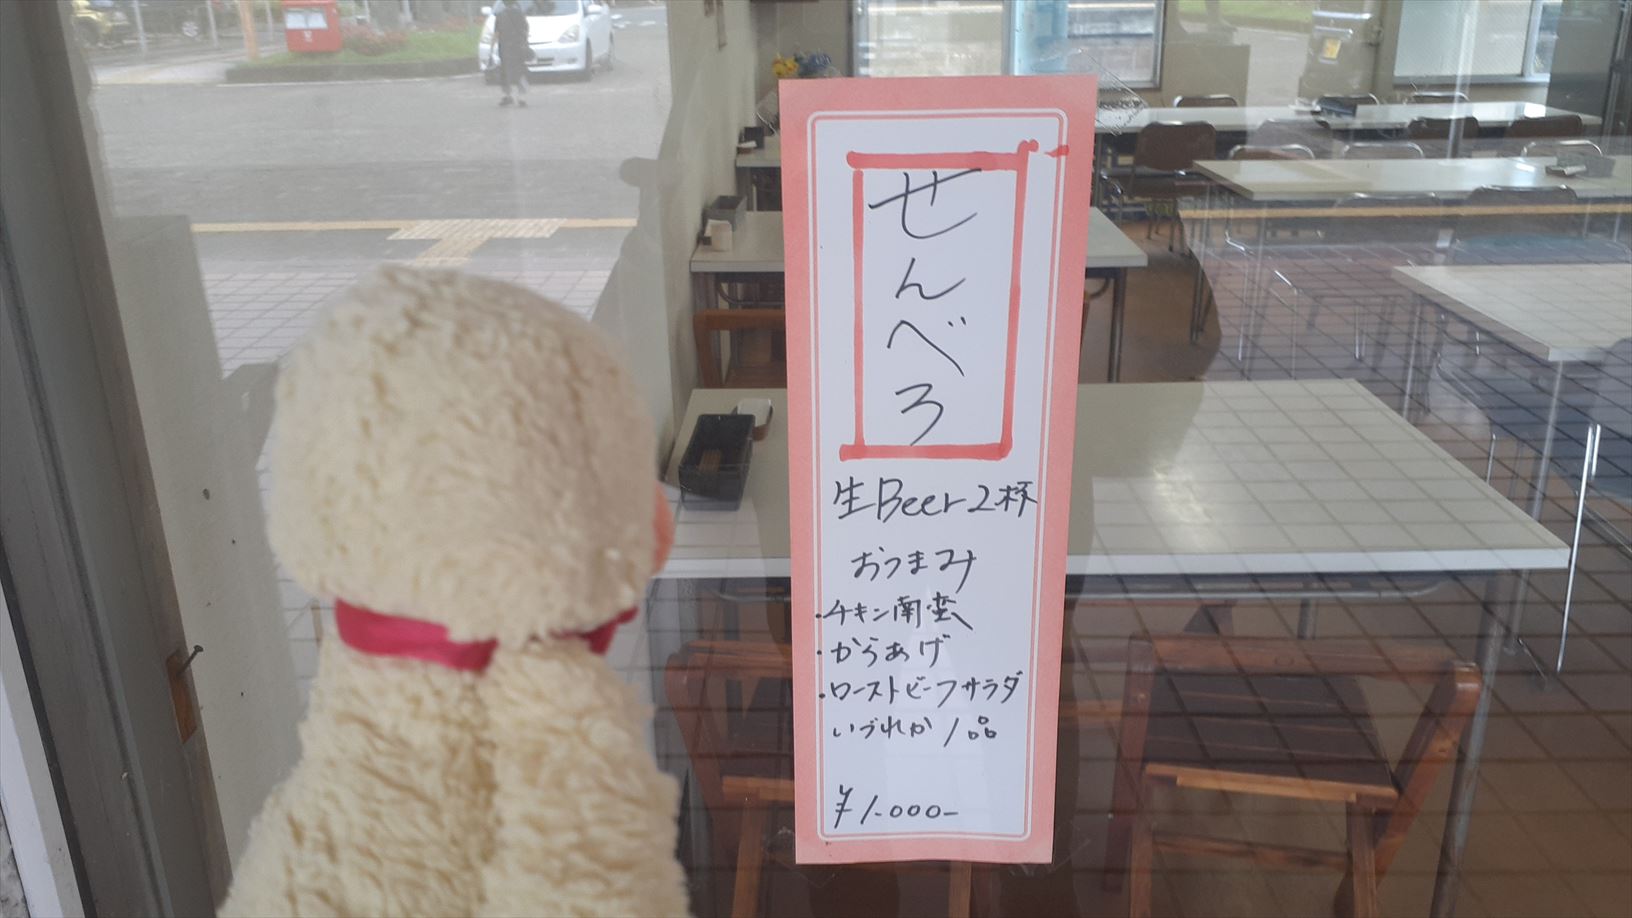 せんべろ
生Beer2杯
おつまみ
・チキン南蛮
・からあげ
・ローストビーフサラダ
いづれか1品
¥1.000-